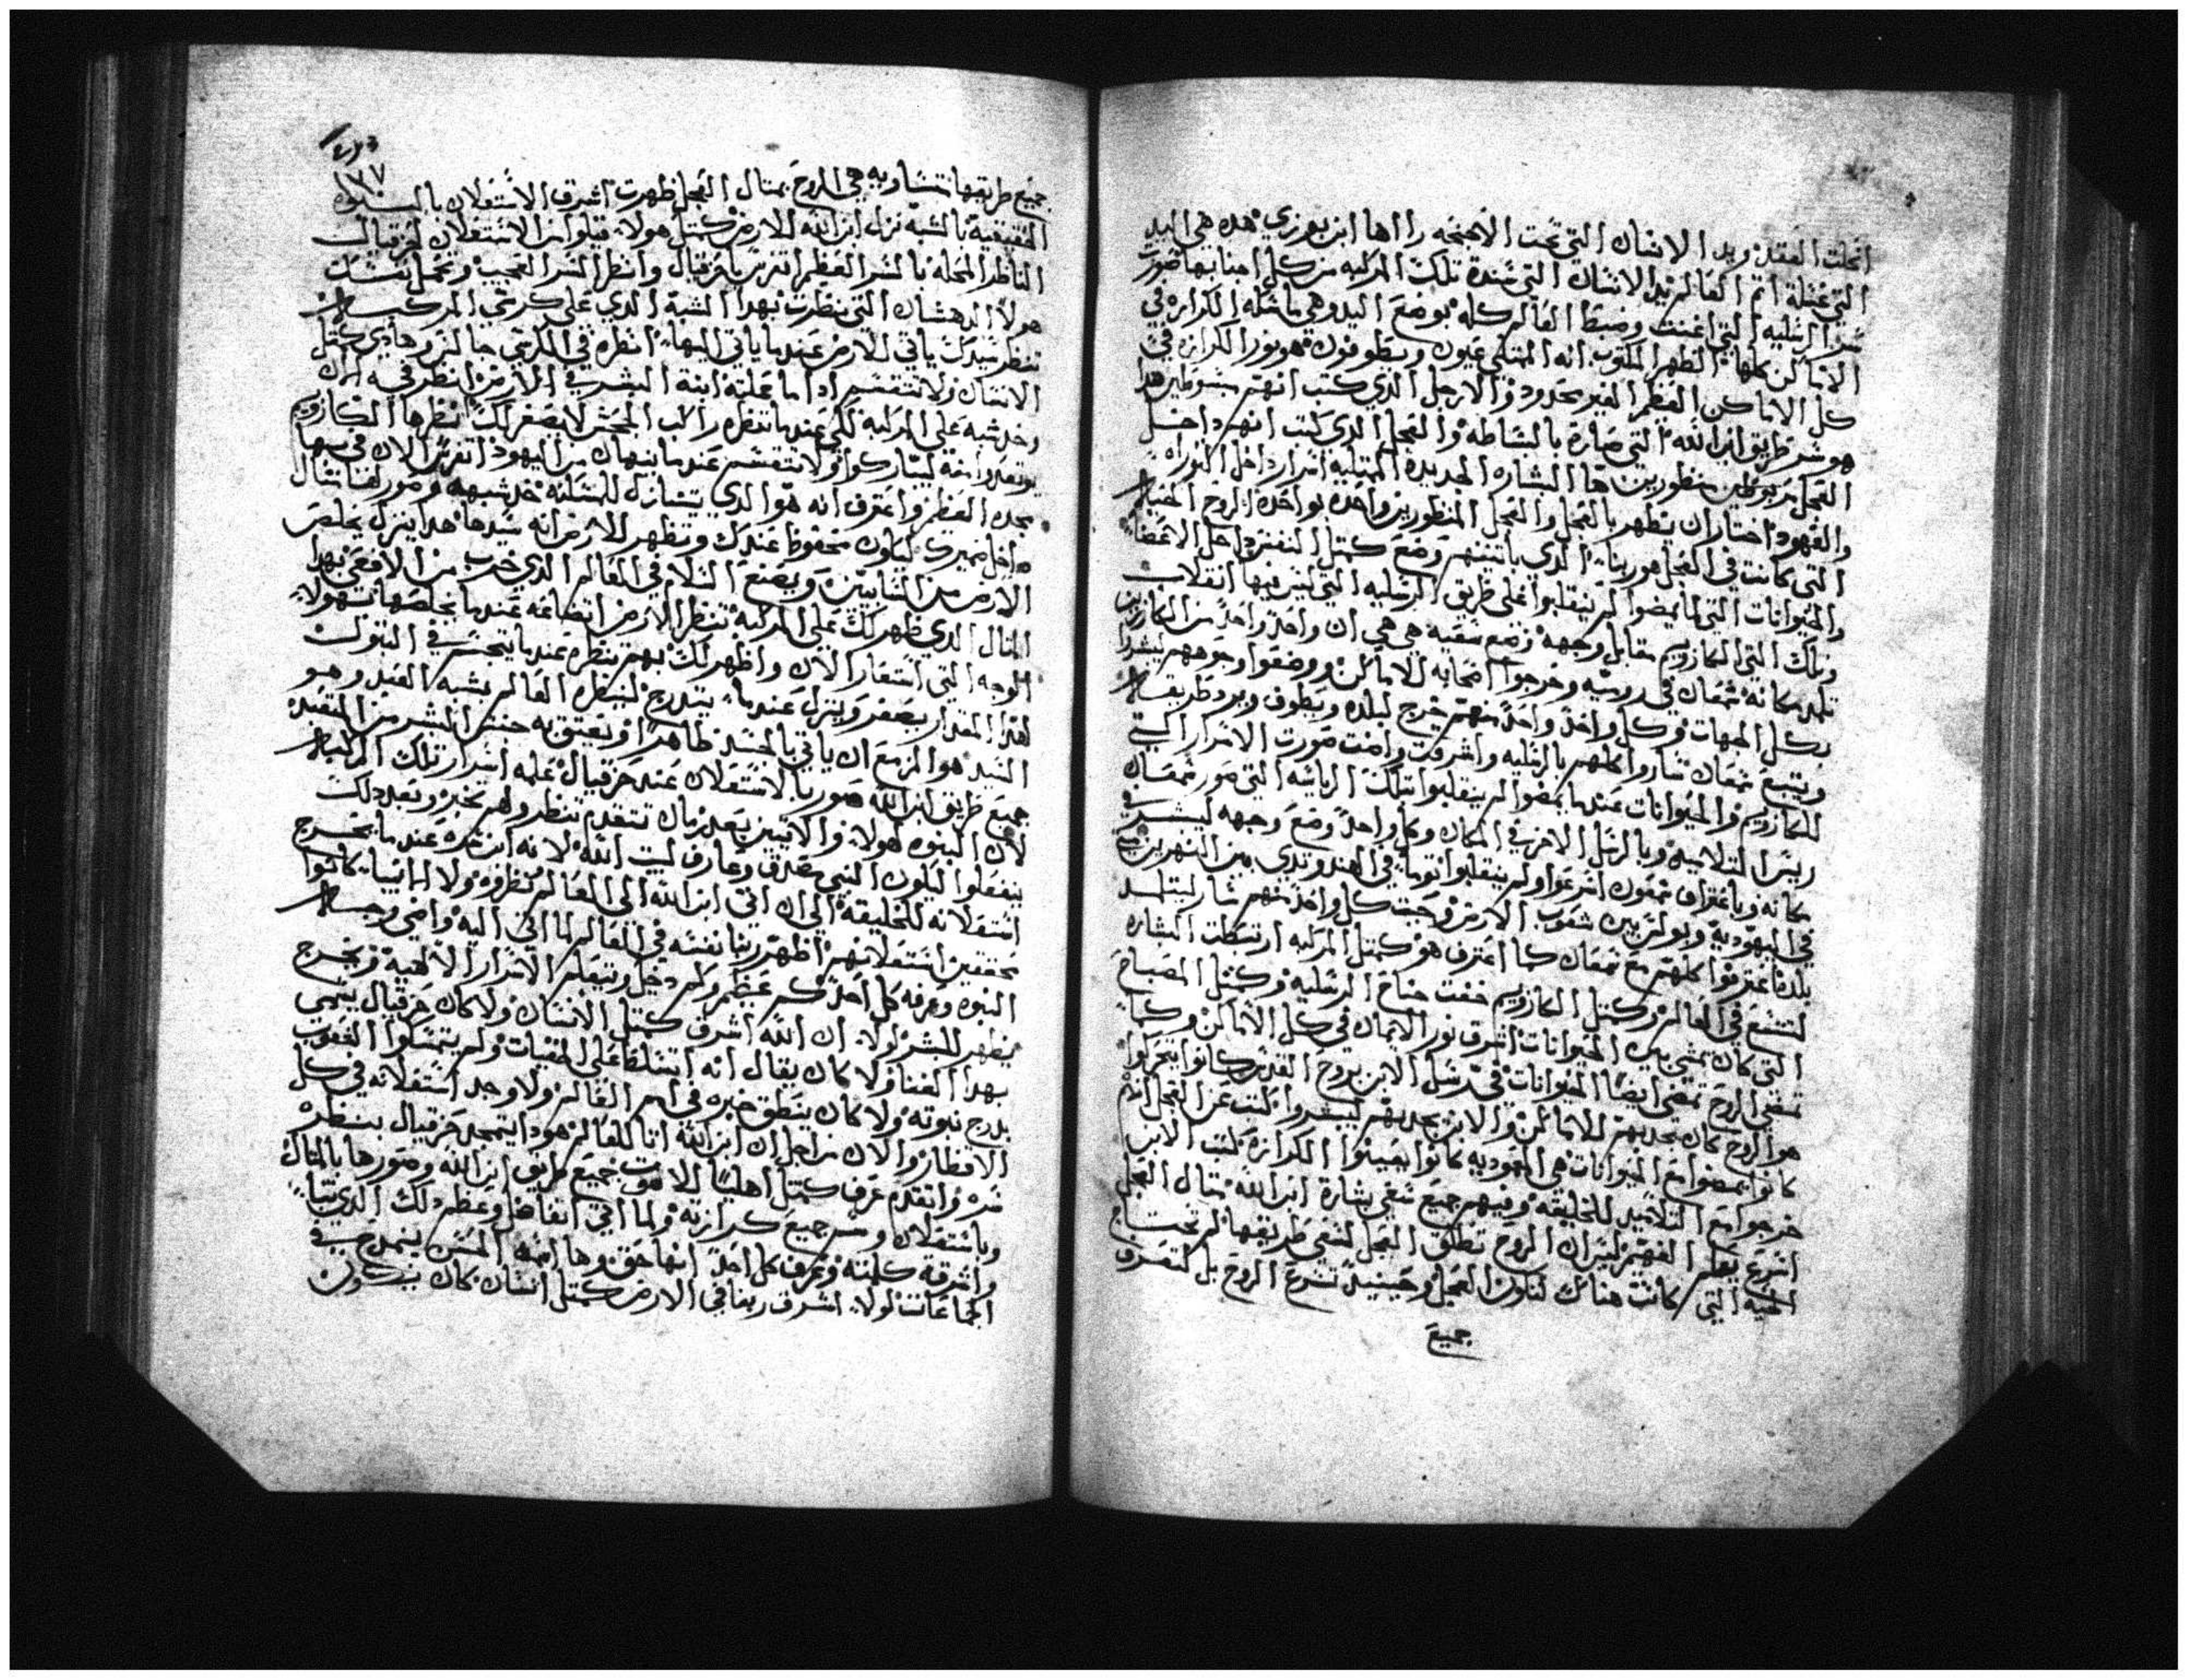 انحلت العقد ويد الانسان التي تحت الاجنحه رااها ابن بوزي هده هي اليد
التي عتله اتم العالم يد الانسان التي سنده تلك المركبه من كل اجنابها صورت
سر الرسليه التي اغنت وضبط العالم كله بوضع اليد وهي ماسكه الكرازه في
الاماكن كلها الطهر المكتوب انه الممتلي عيون ويطوفون هو نور الكرازه في
كل الاماكن العظم الغير محدود والارجل الدي كتب انهم مبسوطين هدا
هو سر طريق ابن الله التي صاره بالبساطه والعجل الدي كتب انهم داخل
العجل مربوطين منظورين ها البشاره الجديده الممتليه اسرار داخل التوراه
والعهود اختار ان يظهر بالعجل والعجل المنظورين واحده بواحده الروح الحياه
التي كانت في العجل هو ربنا الدي باتنينهم وضع كمتل النفس داخل الاعضا
والحيوانات التي لما يمضوا لم ينقلبوا على طريق الرسليه التي ليس فيها انقلاب
وتلك التي الكاروبيم مقابل وجهه وضع سفيه هي هي ان واحد واحد من الكارزين
تلمد مكانه شمعان في روميه وخرجوا اصحابه للاماكن ووضعوا وجوههم ليبشروا
بكل الجهات وكل واحد واحد منهم خرج لبلده ويطوف ويرد طريقه
ويتبع شمعان تساروا كلهم بالرسليه واشرقت وامنت صورت الاسرار التي
للكاروبيم والحيوانات عندما يمضوا لم ينقلبوا بتلك الرياسه التي صور شمعان
ريس التلاميد وبالرسل الاخر في المكان وكل واحد وضع وجهه ليبشر في
مكانه وباعتراف شمعون اسرعوا ولم ينقلبوا توما في الهند وتدي بين النهرين متي
في اليهوديه وبولس بين شعوب الارض وجبت كل واحد منهم سار ليتلمد
بلده اعترفوا كلهم مع شمعان كما اعترف هو كمتل المركبه ارتبطت البشاره
لتتسع في العالم وكمتل الكاروبيم خفت جناح الرسليه وكمتل المصباح
التي كان يمشي بين الحيوانات اشرق نور الايمان في كل الاماكن وكما
تمضي الروح تمضي ايضا الحيوانات في رسل الابن بروح القدس كانوا يتحركوا
هو الروح كان يجدبهم للاماكن والابن يجدبهم ليبشروا كتب عن العجل انهم
كانوا يمضوا مع الحيوانات هي اليهوديه كانوا يعينوا الكرازه كتب الابن
خرجوا مع التلاميد للخليقه وفيهم جميع تسعى بشارة ابن الله متال العجل
اسرع بعلم الفهم ليس ان الروح تطلق العجل لتسعي طريقها لم تحتاج
الحيه التي كانت هناك لتاون العجل وحينيد تسرع الروح بل لتعرف
جميع
١٧٧
جميع طريقها تتساويه هي الروح بمتال العجل ظهرت اشرق الاستعلان بالنبوه
الحقيقيه بالشبه نزل ابن الله للارض كمتل هولا قبلوا ابن الاستعلان لحزقيال
الناظر المجله بالسر العظم اتفرس ياحزقيال وانظر السر العجيب وتحمل تتشكك
هولا الدهشان التي نظرت بهدا الشبه الدي على كرسي المركبه
تنظر سيدك ياتي للارض عندما ياتي اليها انظره في الكرسي جالس وهادي كمتل
الانسان ولا تنقسم ادا ما عليه ابنة البشر في الارض انظر فيه الان
وخد شبه على المركبه لكي عندما تنظره راكب الجحش لا يصغر لك انظرها الكاروبيم
يوتعدوا منه ليباركوا ولا تنقسم عندما ينهان من اليهود اتفرس الان في بها
مجده العظم واعترف انه هو الدي يتنازل للمسكنه خد شبهه وصور لنا تمثال
داخل ضميرك ليكون محفوظ عندك وتظهر للارض انه سيدها هدا ينزل يخلص
الارض من السابيين ويصنع السلام في العالم الدي خرب من الافعي بهدا
المتال الدي ظهر لك على المركبه تنظر الارض اتضاعه عندما يخلصها بسهوله
الوجه التي استعار الان واظهر لك بهم تنظره عندما يتجسد في البتول
لهدا المقدار يصغر وينزل عندما يتدرج لينظره العالم بشبه العبد وهو
السيد هو المزمع ان ياتي بالجسد ظاهرا ويعتق به جنس البشر من التعبد
جميع طريق ابن الله صور بالاستعلان عند حزقيال علمه اسرار تلك المركبه
لان النبوه لهولا والاتيين بعد زمان تتقدم تنظر ولهم تخبر وبعد دلك
ينفعلوا ليكون النبي مصدق وعارف لبيت الله لانه ابن سره عندما يخرج
استعلانه للخليقه الي ان اتي ابن الله الى العالم نظروه ولا الانبيا كانوا
محققين استعلانهم اظهر ربنا نفسه في العالم لما اتي اليه واضي وجه
النبوه وعرفه كل احد كم عظم وكم دخل وتتعلم الاسرار الالهيه وتخرج
يظهر للبشر لولا ان الله اشرق كمتل الانسان ولا كان حزقيال يسمى
بهدا الغنا ولا كان يقال انه اتسلط على الخفيات ولم يتمسكوا الشعوب
بدرج نبوته ولا كان ينطق خبره في امم العالم ولا وجد استعلانه في كل
الاقطار والان من اجل ان ابن الله اتا للعالم هودا يتمجد حزقيال بنظره
سره واتقدم عرف كمتل اهليا للاهوت جميع طريق ابن الله وصورها بالمتال
وباستعلان وسر جميع كرازته ولما اتي اتفاضل وعظم دلك الدي تنبا
واشرقه كلمته وعرف كل احد انها حق وها اسمه الحسن يتمدح في
الجماعات لولا اشرق ربنا في الارض كمتل انسان كان ينكرون